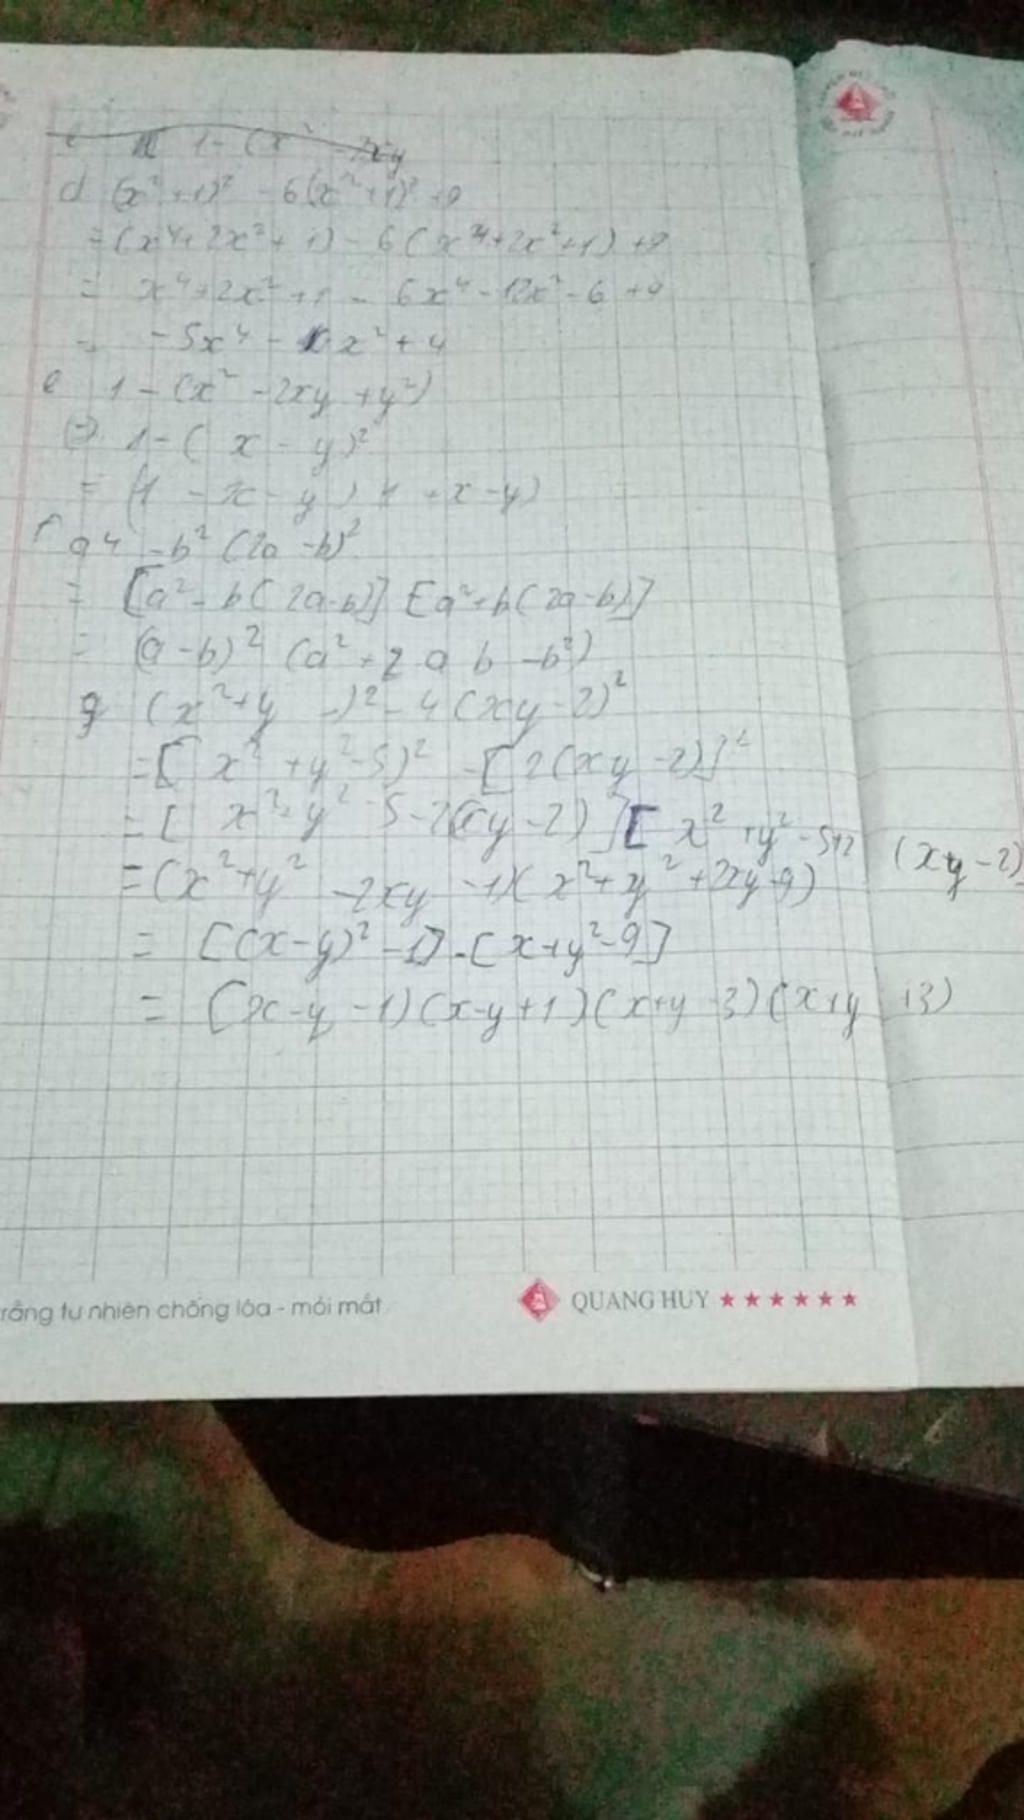 1-(x² - 2xy
d (x²+1)² - 6(x²+1)² +9
= (x⁴+2x²+1) - 6(x⁴+2x²+1) +9
= x⁴+2x²+1 - 6x⁴-12x²-6 +9
= -5x⁴ - 10x²+4
e 1-(x²-2xy+y²)
= 1-(x-y)²
= (1 - x - y) 1 + x-y)
f a⁴ -b² (2a-b)²
= [a²-b(2a-b)] [a²+b(2a-b)]
= (a-b)² (a²+2ab-b²)
g (x²+y -)²-4(xy-2)²
= [x²+y²-5)² - [2(xy-2)]²
= [x²+y²-5-2(xy-2)] [x²+y²-5+2 (xy-2)
= (x²+y²-2xy-1)(x²+y²+2xy-9)
= [(x-y)²-1] - [x+y²-9]
= (x-y-1)(x-y+1)(x+y-3)(x+y+3)
trắng tự nhiên chống lóa - mỏi mắt
QUANG HUY ★★★★★★